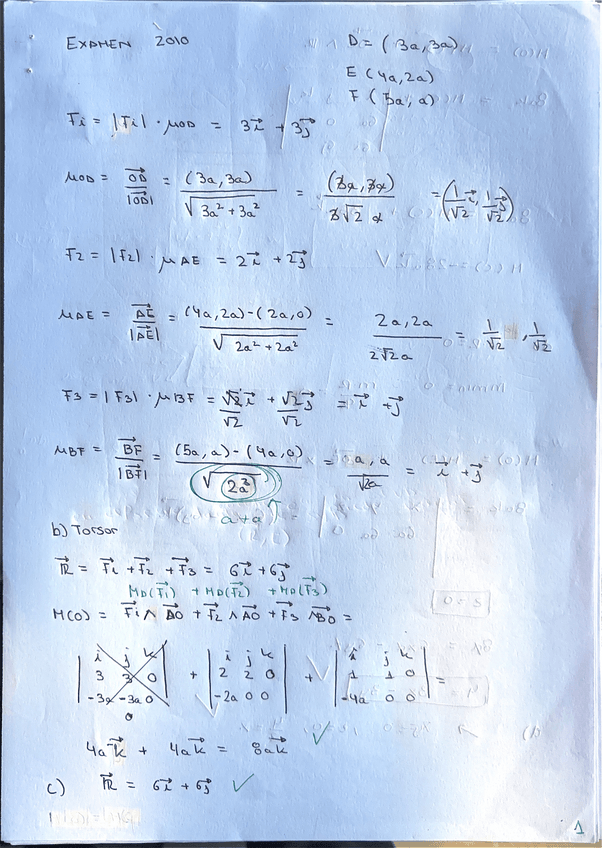 EXAMEN 2010
D = (3a,3a)
E (4a,2a)
F (5a, a)
F1 = |F1| · μOD = 3i + 3j
μOD = OD/|OD| = (3a,3a)/√(3a²+3a²) = (3a,3a)/(3√2 a) = (1/√2 i, 1/√2 j)
F2 = |F2| · μAE = 2i + 2j
μAE = AE/|AE| = (4a,2a)-(2a,0)/√(2a²+2a²) = 2a,2a/2√2a = 1/√2, 1/√2
F3 = |F3| · μBF = √2/√2 i + √2/√2 j = i + j
μBF = BF/|BF| = (5a,a)-(4a,0)/√(2a²) = a,a/√2a = i + j
a+a
b) Torsor
R = F1 + F2 + F3 = 6i + 6j
MD(F1) + MD(F2) + MD(F3)
M(O) = F1 ∧ DO + F2 ∧ AO + F3 ∧ BO =
| i j k | + | i j k | + | i j k |
| 3 3 0 | | 2 2 0 | | 1 1 0 | =
| -3a -3a 0 | | -2a 0 0 | | -4a 0 0 |
0
4ak + 4ak = 8ak ✓
c) R = 6i + 6j ✓
1